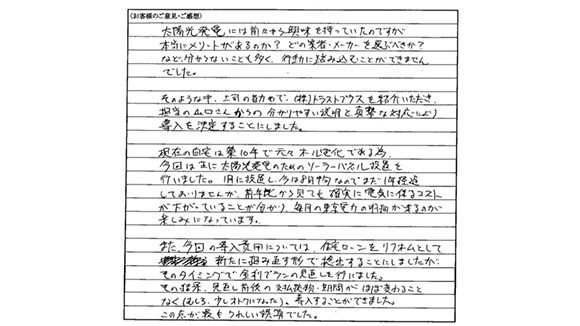 (お客様のご意見・ご感想)
太陽光発電には前々から興味を持っていたのですが
本当にメリットがあるのか? どの業者・メーカーを選ぶべきか?
など、分からないことも多く、行動に踏み込むことができません
でした。
そのような中、上司の自宅で、(株)トラストプラスを紹介いただき、
担当の山口さんからの分かりやすい説明と真摯な対応により
導入を決定することにしました。
現在の自宅は築10年で元々オール電化である為、
今回は主に太陽光発電のためのソーラーパネル設置を
行いました。1月に設置し、今は8月中旬なのでまだ1年経過
しておりませんが、前年比から見ても確実に電気に係るコスト
が下がっていることが分かり、毎月の東京電力の明細が来るのが
楽しみになっています。
また、今回の導入費用については、住宅ローンをリフォームとして
新たに組み直す形で捻出することにしましたが
そのタイミングで金利プランの見直しを行いました。
その結果、見直し前後の支払総額・期間がほぼ変わること
なく(むしろ、少しオトクになった)、導入することができました。
この点が最もうれしい誤算でした。